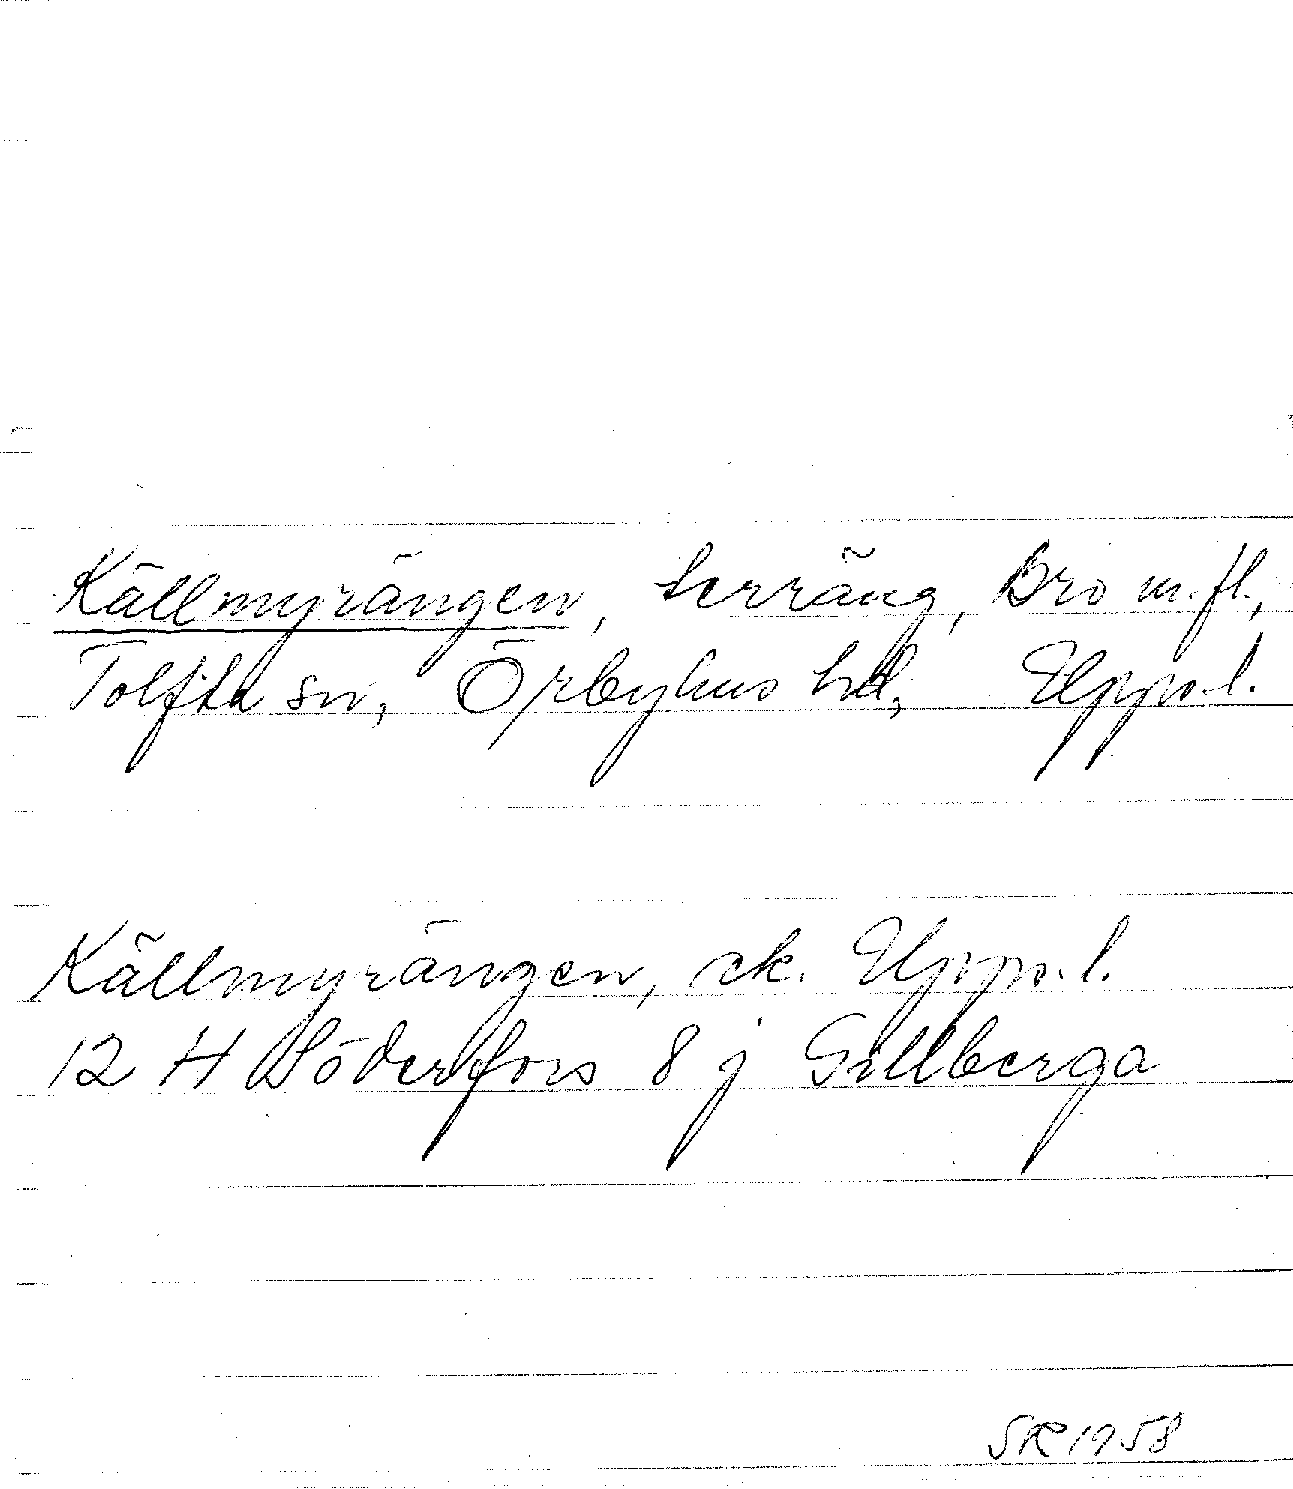 Källmyrängen, terräng, Bro m.fl.,
Tolfta sn, Örbyhus hd, Uppl.
Källmyrängen, ek. Uppl.
12 H Söderfors 8 j Gillberga
SR 1958